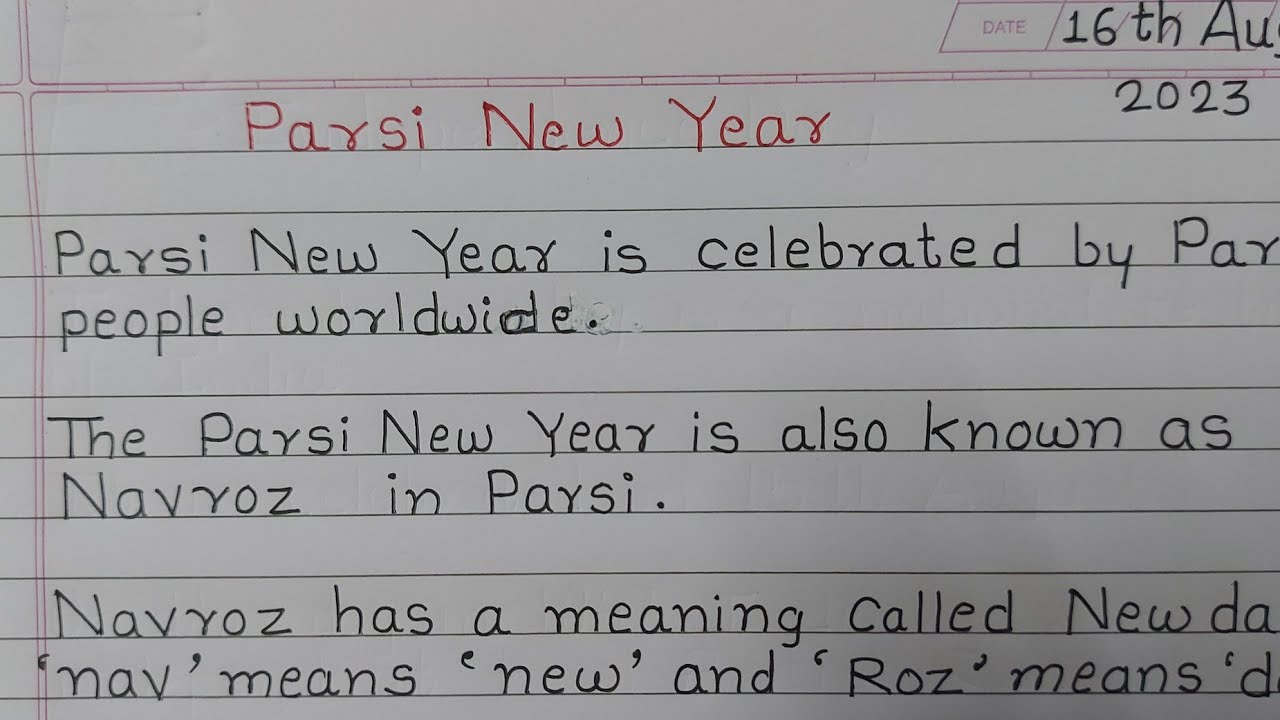 DATE 16th Aug
2023
Parsi New Year
Parsi New Year is celebrated by Par
people worldwide.
The Parsi New Year is also known as
Navroz in Parsi.
Navroz has a meaning called New da
'nav' means 'new' and 'Roz' means 'd